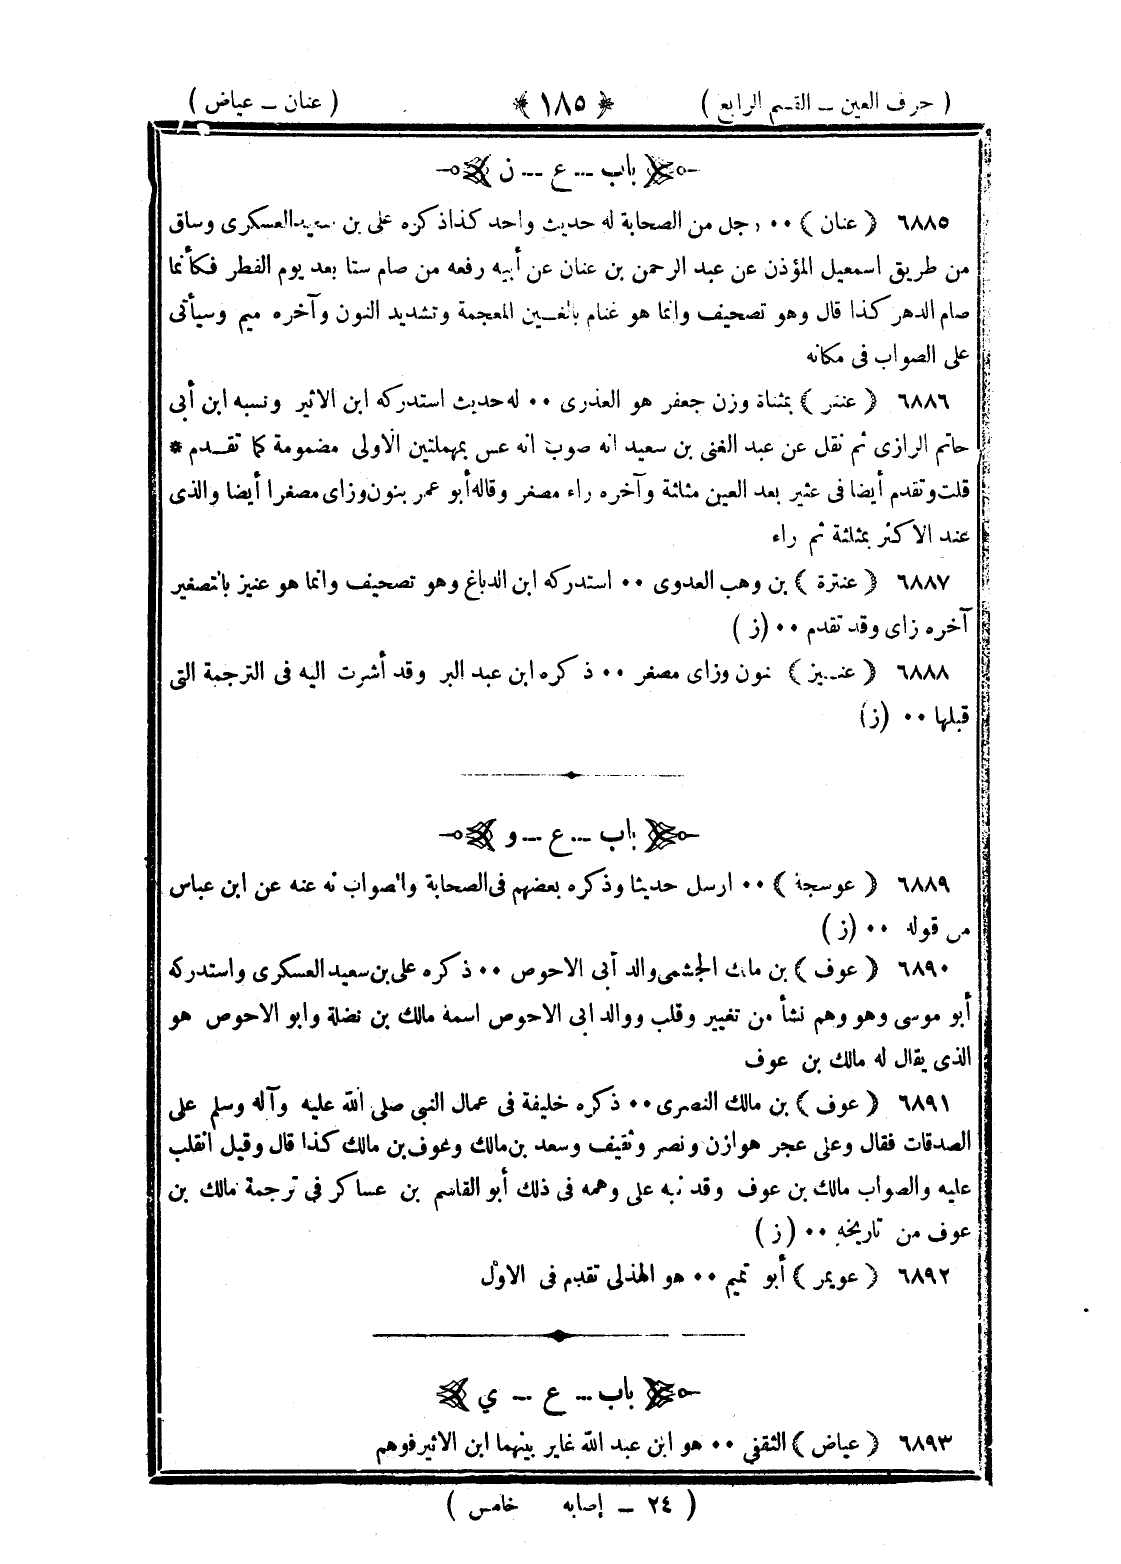 ( حرف العين – القسم الرابع ) ﴿ ١٨٥ ﴾ ( عنان – عياض )
باب – ع – ن
٦٨٨٥ ( عنان ) ٠٠ رجل من الصحابة له حديث واحد كذاذكره على بن سعيد العسكرى وساق
من طريق اسمعيل المؤذن عن عبد الرحمن بن عنان عن أبيه رفعه من صام ستا بعد يوم الفطر فكأنما
صام الدهر كذا قال وهو تصحيف وانما هو غنام بالغين المعجمة وتشديد النون وآخره ميم وسيأتى
على الصواب فى مكانه
٦٨٨٦ ( عنتر ) بمثناة وزن جعفر هو العذرى ٠٠ له حديث استدركه ابن الاثير ونسبه ابن أبى
حاتم الرازى ثم نقل عن عبد الغنى بن سعيد انه صوب انه عس بمهملتين الاولى مضمومة كما تقدم *
قلت وتقدم أيضا فى عثير بعد العين مثلثة وآخره راء مصغر وقاله أبو عمر بنون وزاى مصغرا أيضا والذى
عند الاكثر بمثلثة ثم راء
٦٨٨٧ ( عنترة ) بن وهب العدوى ٠٠ استدركه ابن الدباغ وهو تصحيف وانما هو عنيز بالتصغير
آخره زاى وقد تقدم ٠٠ ( ز )
٦٨٨٨ ( عنيز ) بنون وزاى مصغر ٠٠ ذكره ابن عبد البر وقد أشرت اليه فى الترجمة التى
قبلها ٠٠ ( ز )
باب – ع – و
٦٨٨٩ ( عوسجة ) ٠٠ ارسل حديثا وذكره بعضهم فى الصحابة والصواب نه عنه عن ابن عباس
من قوله ٠٠ ( ز )
٦٨٩٠ ( عوف ) بن مالك الجشمى والد أبى الاحوص ٠٠ ذكره على بن سعيد العسكرى واستدركه
أبو موسى وهو وهم نشأ من تغيير وقلب ووالد ابى الاحوص اسمه مالك بن نضلة وابو الاحوص هو
الذى يقال له مالك بن عوف
٦٨٩١ ( عوف ) بن مالك النصرى ٠٠ ذكره خليفة فى عمال النبى صلى الله عليه وآله وسلم على
الصدقات فقال وعلى عجر هوازن ونصر وثقيف وسعد بن مالك وعوف بن مالك كذا قال وقيل انقلب
عليه والصواب مالك بن عوف وقد نبه على وهمه فى ذلك أبو القاسم بن عساكر فى ترجمة مالك بن
عوف من تاريخه ٠٠ ( ز )
٦٨٩٢ ( عويمر ) أبو تميم ٠٠ هو الهذلى تقدم فى الاول
باب – ع – ي
٦٨٩٣ ( عياض ) الثقفى ٠٠ هو ابن عبد الله غاير بينهما ابن الاثير فوهم
( ٢٤ – إصابه خامس )